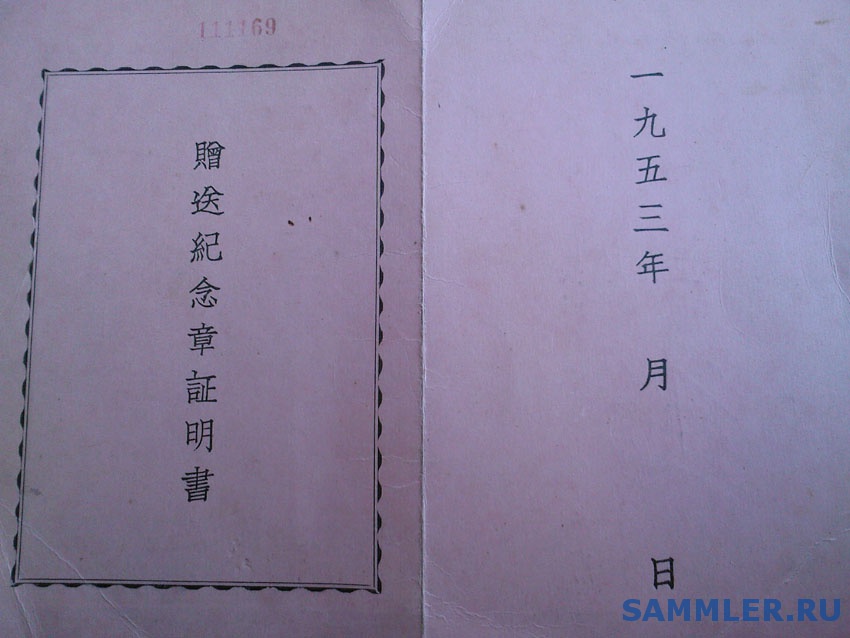 111169
贈送紀念章証明書
一九五三年 月 日
SAMMLER.RU